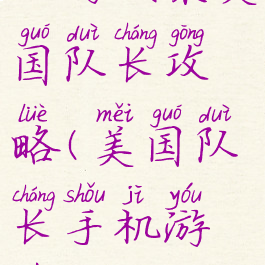 guó duì cháng gōng
国队长攻
lüè měi guó duì
略(美国队
cháng shǒu jī yóu
长手机游